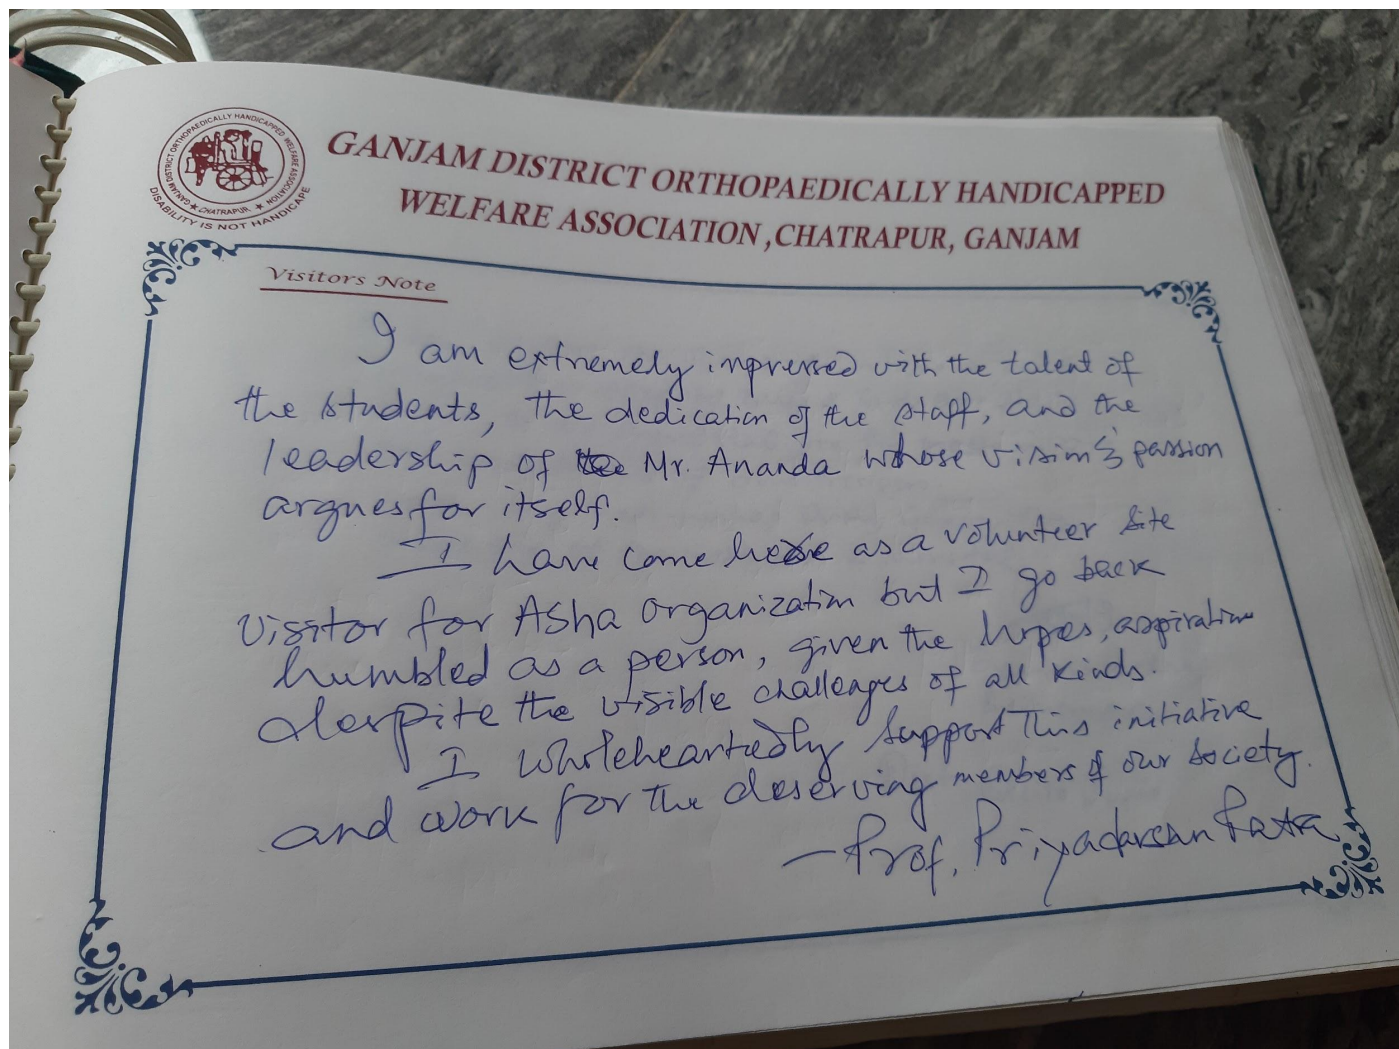 GANJAM DISTRICT ORTHOPAEDICALLY HANDICAPPED WELFARE ASSOCIATION
★ CHATRAPUR ★
DISABILITY IS NOT HANDICAPE
GANJAM DISTRICT ORTHOPAEDICALLY HANDICAPPED
WELFARE ASSOCIATION ,CHATRAPUR, GANJAM
Visitors Note
I am extremely impressed with the talent of
the students, the dedication of the staff, and the
leadership of Mr. Ananda whose vision & passion
argues for itself.
I have come here as a volunteer site
visitor for Asha organization but I go back
humbled as a person, given the hopes, aspiration
despite the visible challenges of all kinds.
I wholeheartedly support this initiative
and work for the deserving members of our society.
— Prof. Priyadarsan Patra